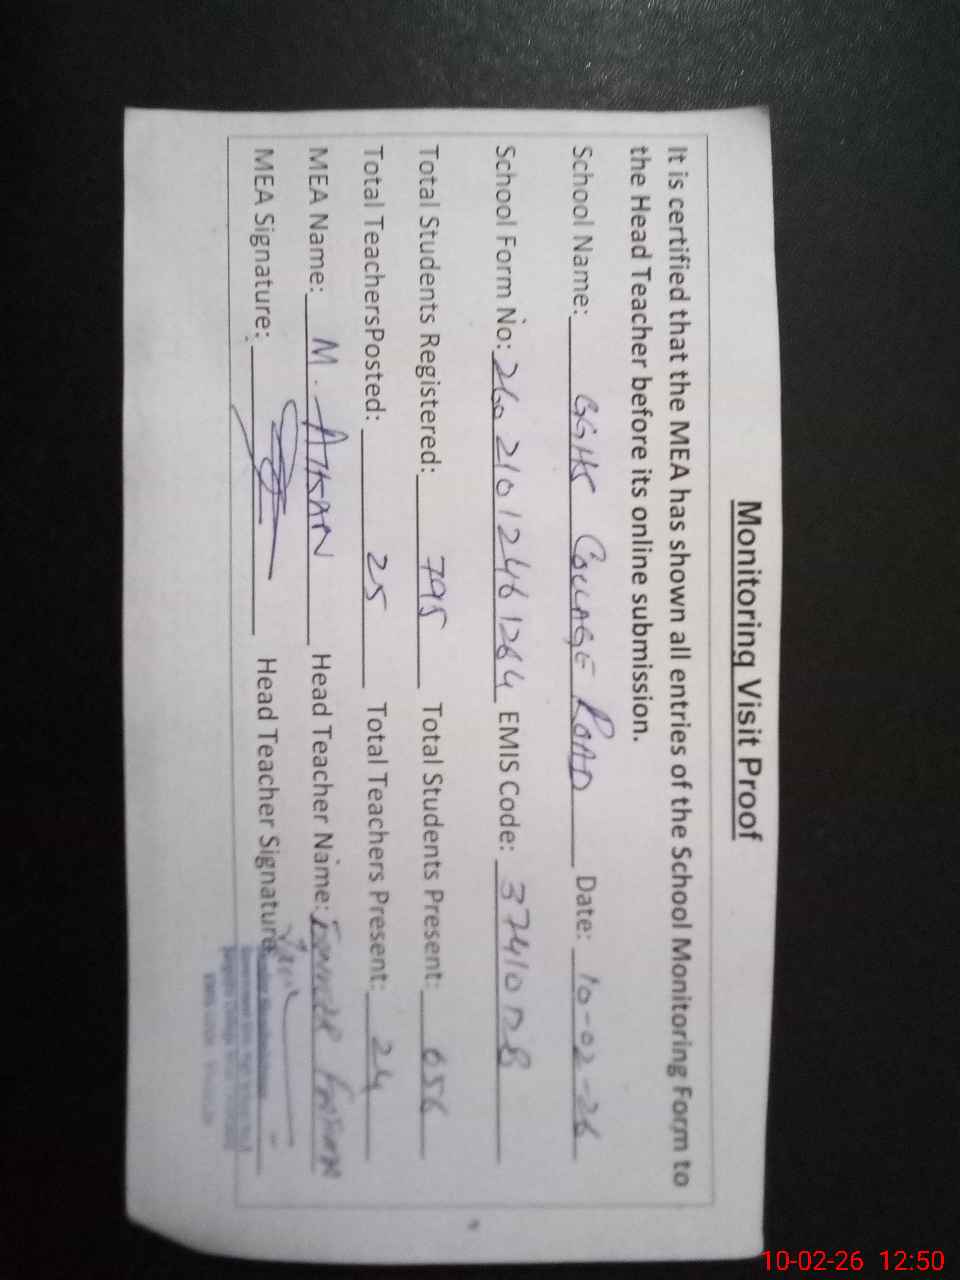 Monitoring Visit Proof
It is certified that the MEA has shown all entries of the School Monitoring Form to
the Head Teacher before its online submission.
School Name: GGHS COLLAGE ROAD Date: 10-02-26
School Form No: EMIS Code:
Total Students Registered: 795 Total Students Present: 656
Total TeachersPosted: 25 Total Teachers Present: 24
MEA Name: M. Head Teacher Name:
MEA Signature: Head Teacher Signature
10-02-26 12:50